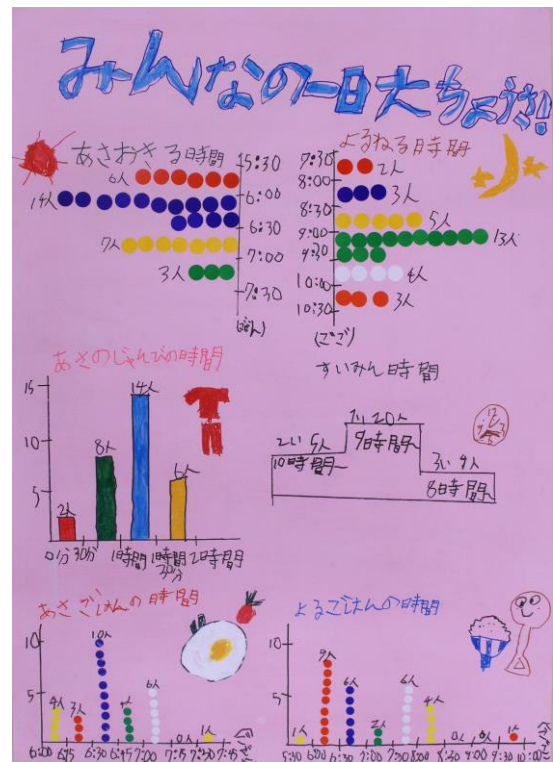 みんなの一日大ちょうさ!
あさおきる時間
6人
14人
7人
3人
15:30
6:00
6:30
7:00
7:30
よるねる時間
7:30
8:00
8:30
9:00
9:30
10:00
10:30
2人
3人
5人
13人
4人
3人
(ごご)
あさのじゅんびの時間
15
10
5
2人
8人
14人
6人
0分
30分
1時間
1時間30分
2時間
すいみん時間
1い 20人
9時間〜
2い 5人
10時間〜
3い 9人
8時間〜
あさごはんの時間
10
5
4人
3人
10人
4人
6人
0人
1人
6:00
6:15
6:30
6:45
7:00
7:15
7:30
7:45
よるごはんの時間
10
5
1人
9人
6人
2人
6人
4人
0人
0人
1人
5:30
6:00
6:30
7:00
7:30
8:00
8:30
9:00
9:30
10:00